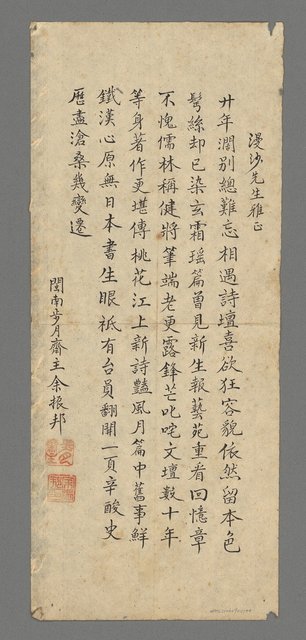 漫沙先生雅正
廿年濶別總難忘相遇詩壇喜欲狂容貌依然留本色
鬢絲却已染玄霜瑶篇曾見新生報藝苑重看回憶章
不愧儒林稱健將筆端老更露鋒芒叱咤文壇數十年
等身著作更堪傳桃花江上新詩豔風月篇中舊事鮮
鐵漢心原無日本書生眼祇有台員翻開一頁辛酸史
歷盡滄桑幾變遷
閩南步月齋主余振邦